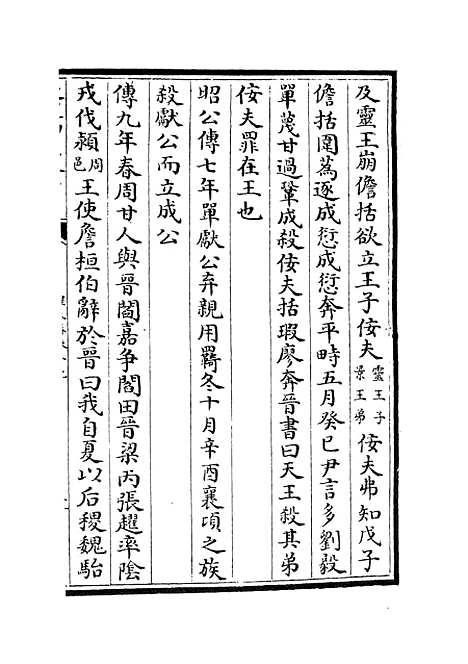 及靈王崩儋括欲立王子佞夫靈王子景王弟佞夫弗知戊子
儋括圍蒍逐成愆成愆奔平畤五月癸巳尹言多劉毅
單蔑甘過鞏成殺佞夫括瑕廖奔晉書曰天王殺其弟
佞夫罪在王也
昭公傳七年單獻公弃親用羈冬十月辛酉襄頃之族
殺獻公而立成公
傳九年春周甘人與晉閻嘉争閻田晉梁丙張趯率陰
戎伐潁周邑王使詹桓伯辭於晉曰我自夏以后稷魏駘